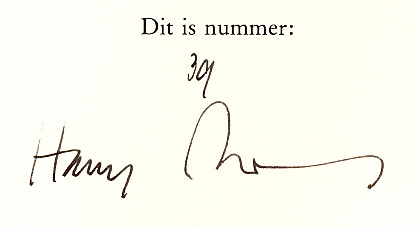 Dit is nummer:
39
Harry